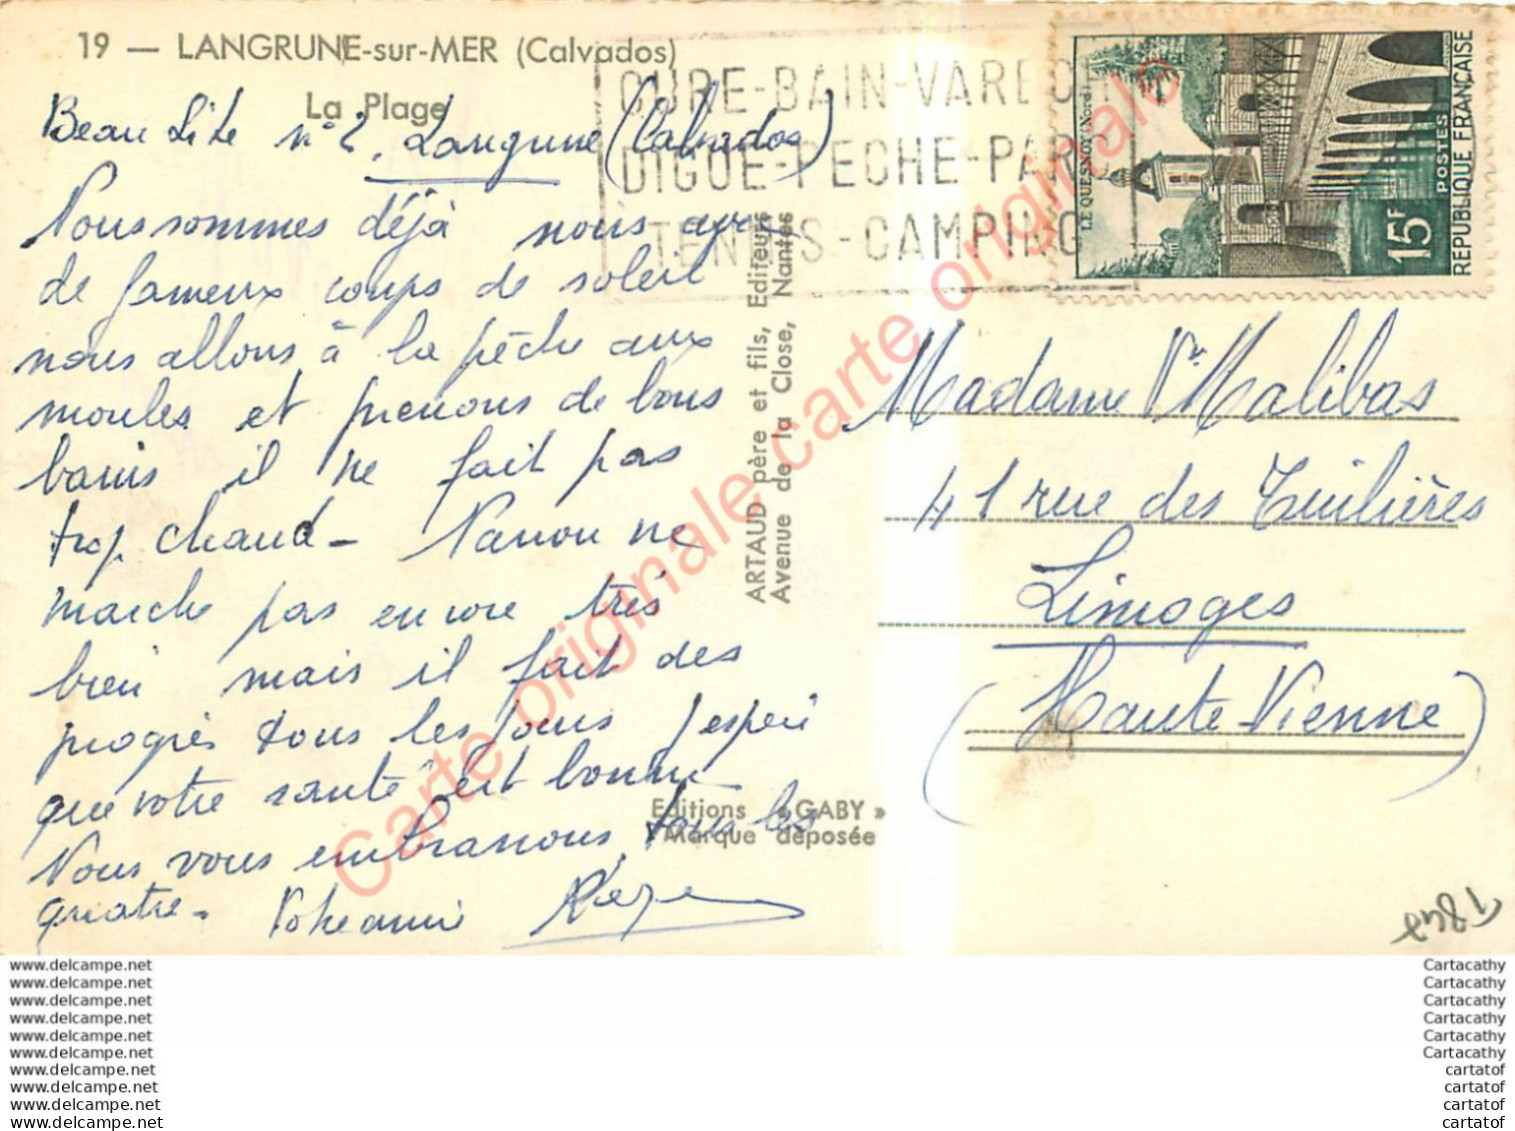 19 — LANGRUNE-sur-MER (Calvados)
La Plage
Beau Site n° 2. Langrune (Calvados)
Nous sommes déjà nous avons
de fameux coups de soleil
nous allons à la pêche aux
moules et prenons de bons
bains il ne fait pas
trop chaud - Nanou ne
marche pas encore très
bien mais il fait des
progrès tous les jours j'espère
que votre santé est bonne
Nous vous embrassons tous les
quatre.
CURE-BAIN-VARECH
DIGUE-PECHE-PARC
TENNIS-CAMPING
LE QUESNOY (Nord)
15F
POSTES
REPUBLIQUE FRANÇAISE
ARTAUD père et fils, Editeurs
Avenue de la Close, Nantes
Editions « GABY »
Marque déposée
Madame Vve Malibas
41 rue des Tuilières
Limoges
(Haute Vienne)
Carte originale carte originale
www.delcampe.net
www.delcampe.net
www.delcampe.net
www.delcampe.net
www.delcampe.net
www.delcampe.net
www.delcampe.net
www.delcampe.net
www.delcampe.net
www.delcampe.net
Cartacathy
Cartacathy
Cartacathy
Cartacathy
Cartacathy
Cartacathy
cartatof
cartatof
cartatof
cartatof